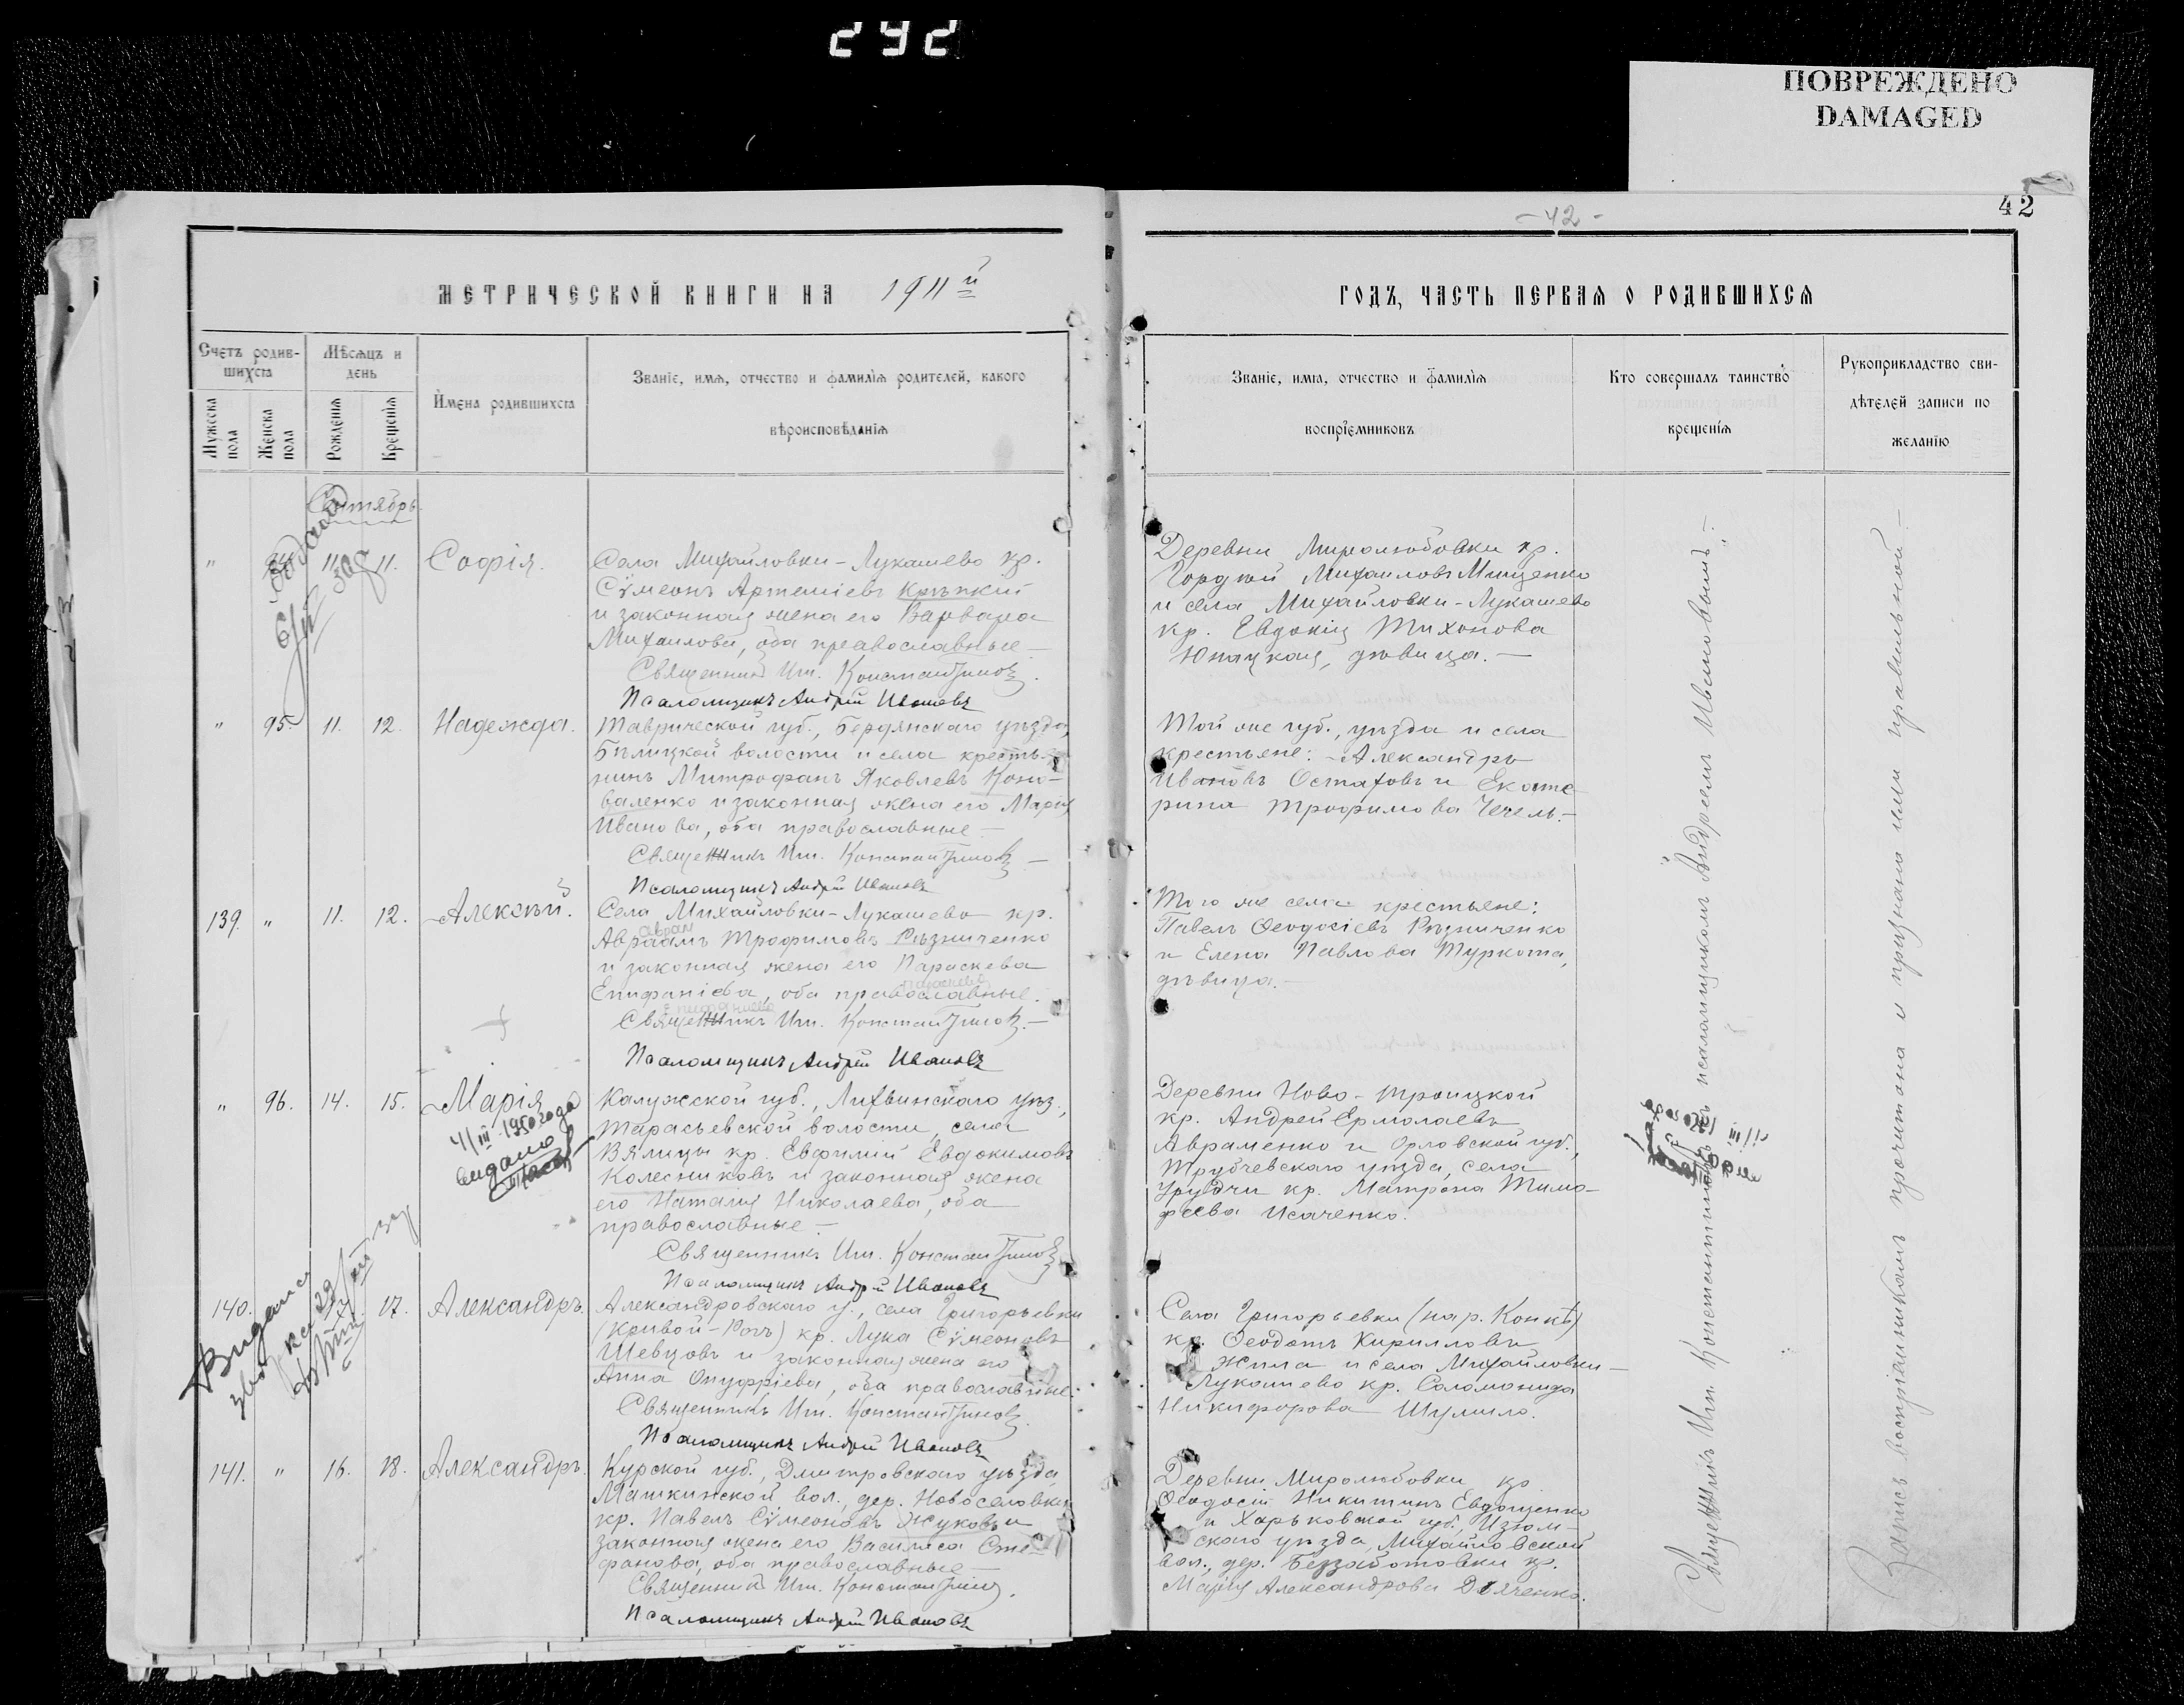 292
ПОВРЕЖДЕНО
DAMAGED
42
- 42 -
МЕТРИЧЕСКОЙ КНИГИ НА 1911й
ГОДЪ, ЧАСТЬ ПЕРВАЯ О РОДИВШИХСЯ
Счетъ родив-
шихся
Мѣсяцъ и
день
Мужеска пола
Женска пола
Рожденія
Крещенія
Имена родившихся
Званіе, имя, отчество и фамилія родителей, какого
вѣроисповѣданія
Званіе, имя, отчество и фамилія
воспріемниковъ
Кто совершалъ таинство
крещенія
Рукоприкладство сви-
дѣтелей записи по
желанію
Сентябрь.
" 11. 11. Софія.
Села Михайловки-Лукашево кр.
Сѵмеонъ Артеміевъ Крѣпкій
и законная жена его Варвара
Михаилова, оба православные
Священникъ Іп. Константиновъ.
Псаломщикъ Андрей Ивановъ
Деревни Миролюбовки кр.
Гордѣй Михаиловъ Мищенко
и села Михайловки-Лукашево
кр. Евдокія Тихонова
Юнацкая, дѣвица.
" 95. 11. 12. Надежда.
Таврической губ., Бердянскаго уѣзда,
Бѣлицкой волости и села крестья-
нинъ Митрофанъ Яковлевъ Коно-
валенко и законная жена его Марія
Иванова, оба православные
Священникъ Іп. Константиновъ
Псаломщикъ Андрей Ивановъ
Той же губ., уѣзда и села
крестьяне: Александръ
Ивановъ Остаховъ и Екате-
рина Трофимова Чечель.
139. " 11. 12. Алексѣй.
Села Михайловки-Лукашево кр.
Авраамъ Трофимовъ Рѣзниченко
и законная жена его Параскева
Епифаніева, оба православные.
Священникъ Іп. Константиновъ.
Псаломщикъ Андрей Ивановъ
Того же села крестьяне:
Павелъ Ѳеодосіевъ Рѣзниченко
и Елена Павлова Туркота,
дѣвица.
" 96. 14. 15. Марія
4/III-1950 года
видано
Калужской губ., Лихвинскаго уѣз.,
Тарасьевской волости, села
Вялицы кр. Евфимій Евдокимовъ
Колесниковъ и законная жена
его Наталія Николаева, оба
православные
Священникъ Іп. Константиновъ
Псаломщикъ Андрей Ивановъ
Деревни Ново-Троицкой
кр. Андрей Ермолаевъ
Авраменко и Орловской губ.,
Трубчевскаго уѣзда, села
кр. Матрона Тимо-
феева Исаченко.
140. 17. Александръ.
Александровскаго у., села Григорьевки
(Кривой-Рогъ) кр. Лука Сѵмеоновъ
Шевцовъ и законная жена его
Анна Онуфріева, оба православные.
Священникъ Іп. Константиновъ.
Псаломщикъ Андрей Ивановъ
Села Григорьевки (на р. Конкѣ)
кр. Ѳеодотъ Кирилловъ
Жила и села Михайловки-
Лукашево кр. Соломонида
Никифорова Шумило.
141. " 16. 18. Александръ.
Курской губ., Дмитровского уѣзда
Машкинской вол., дер. Новоселовки
кр. Павелъ Сѵмеоновъ Жуковъ и
законная жена его Василиса Сте-
фанова, оба православные
Священникъ Іп. Константиновъ.
Псаломщикъ Андрей Ивановъ
Деревни Миролюбовки кр.
Ѳеодосій Никитинъ Евдощенко
и Харьковской губ., Изюм-
скаго уѣзда, Михайловской
вол., дер. Беззаботовки кр.
Марія Александрова Дяченко.
Священникъ Іп. Константиновъ съ псаломщикомъ Андреемъ Ивановымъ.
Запись воспріемникамъ прочитана и признана ими правильной